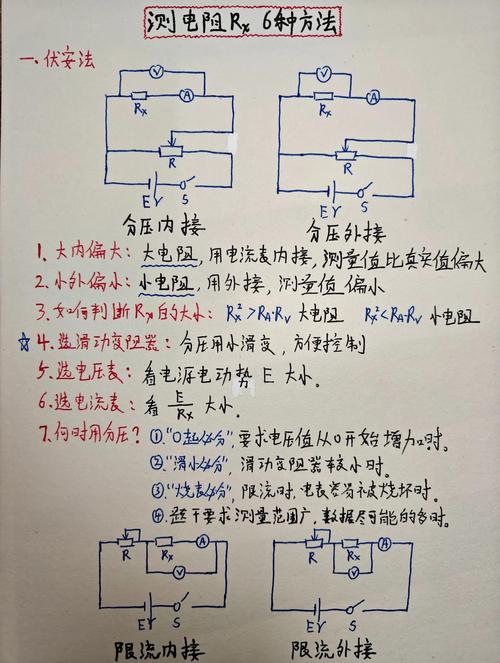 测电阻Rx 6种方法
一、伏安法
V V
Rx A Rx A
R R
Er S Er S
分压内接 分压外接
1. 大内偏大: 大电阻, 用电流表内接, 测量值比真实值偏大
2. 小外偏小: 小电阻, 用外接, 测量值偏小
3. 如何判断Rx的大小: Rx²>RA·RV 大电阻 Rx²<RA·RV 小电阻
☆4. 选滑动变阻器: 分压用小滑变, 方便控制
5. 选电压表: 看电源电动势 E 大小。
6. 选电流表: 看 E/Rx 大小。
7. 何时用分压? ①"0起必分", 要求电压值从0开始增加时。
②"滑小必分", 滑动变阻器较小时。
③"烧表必分", 限流时, 电表容易被烧坏时。
④ 题干要求测量范围广, 数据尽可能的多时。
R Rx A R Rx A
V V
Er S Er S
限流内接 限流外接